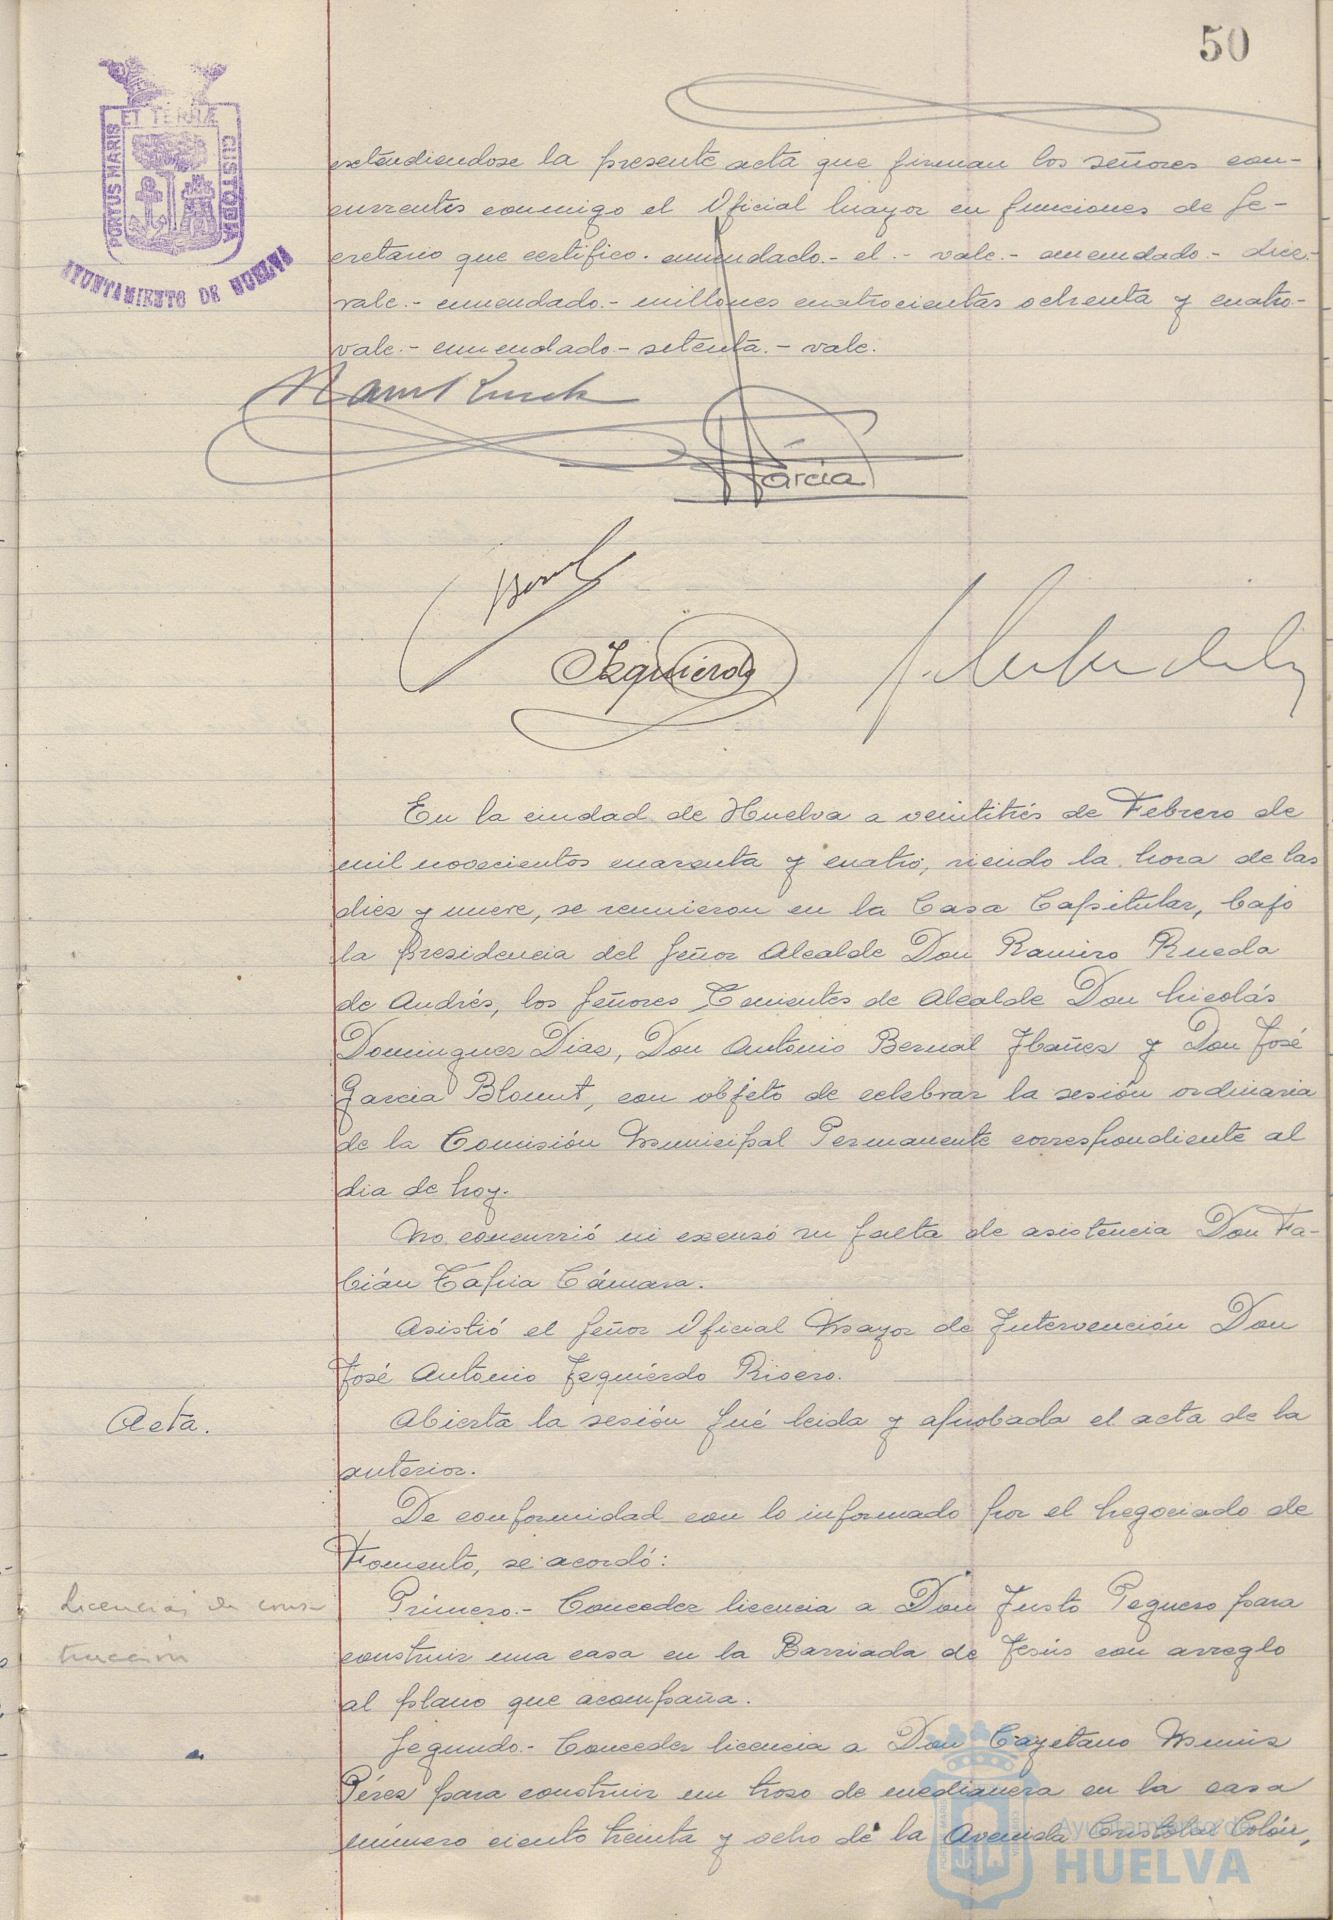 50
PORTUS MARIS ET TERRÆ CUSTODIA
AYUNTAMIENTO DE HUELVA
extendiendose la presente acta que firman los señores con-
currentes conmigo el Oficial Mayor en funciones de Se-
cretario que certifico. enmendado.- el.- vale.- enmendado.- diez.-
vale.- enmendado.- millones cuatrocientas ochenta y cuatro.-
vale.- enmendado.- setenta.- vale.
García
Bernal
Izquierdo
En la ciudad de Huelva a veintitrés de Febrero de
mil novecientos cuarenta y cuatro, siendo la hora de las
diez y nueve, se reunieron en la Casa Capitular, bajo
la presidencia del Señor Alcalde Don Ramiro Rueda
de Andrés, los Señores Tenientes de Alcalde Don Nicolás
Dominguez Diaz, Don Antonio Bernal Ibañez y Don José
Garcia Blount, con objeto de celebrar la sesión ordinaria
de la Comisión Municipal Permanente correspondiente al
dia de hoy.
No concurrió ni excusó su falta de asistencia Don Fa-
bián Tapia Cámara.
Asistió el Señor Oficial Mayor de Intervención Don
José Antonio Izquierdo Risero.
Acta.
Abierta la sesión fué leida y aprobada el acta de la
anterior.
De conformidad con lo informado por el Negociado de
Fomento, se acordó:
Licencias de cons-
trucción
Primero.- Conceder licencia a Don Justo Peguero para
construir una casa en la Barriada de Jesús con arreglo
al plano que acompaña.
Segundo.- Conceder licencia a Don Cayetano Muñiz
Pérez para construir un trozo de medianera en la casa
número ciento treinta y ocho de la Avenida Cristobal Colón,
Ayuntamiento de
HUELVA